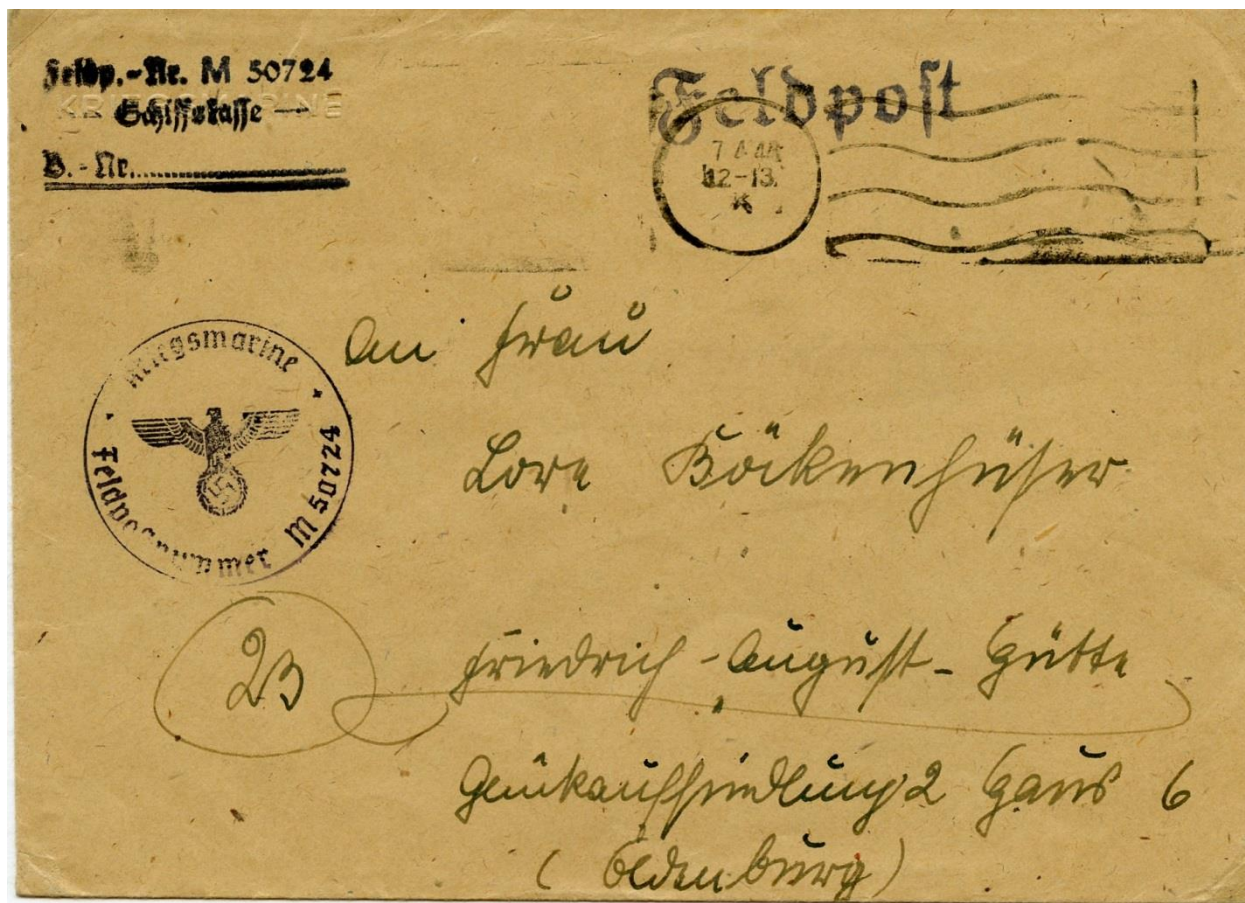 Feldp.-Nr. M 50724
KRIEGSMARINE
Schiffskasse
B.-Nr.
Feldpost
7.4.44
12-13
Kriegsmarine
Feldpostnummer M 50724
An Frau
Lore Böckenhüser
23
Friedrich-August-Hütte
Glückaufsiedlung 2 Haus 6
(Oldenburg)